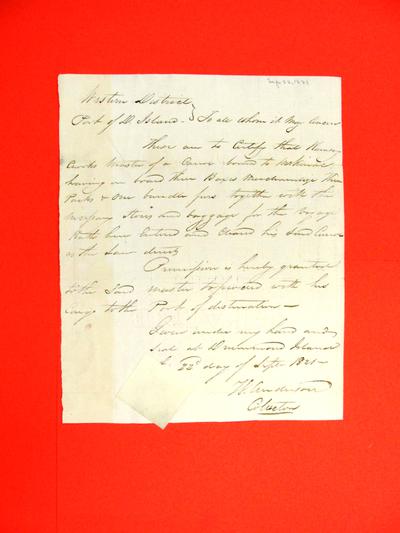 Sep 22, 1821
Western District
Port of D. Island } To all whom it May Concern
These are to Certify that
Crooks Master of a Canoe bound to
having on board three Boxes Merchandize three
Packs & One bundle furs together with the
necessary Stores and baggage for the Voyage
Hath here Entered and Cleared his Said Canoe
as the Law directs
Permission is hereby granted
to the Said master to proceed with his
Cargo to the Port of destination —
Given under my hand and
seal at Drummond Island
22d day of Septr 1821 —
Anderson
Collector